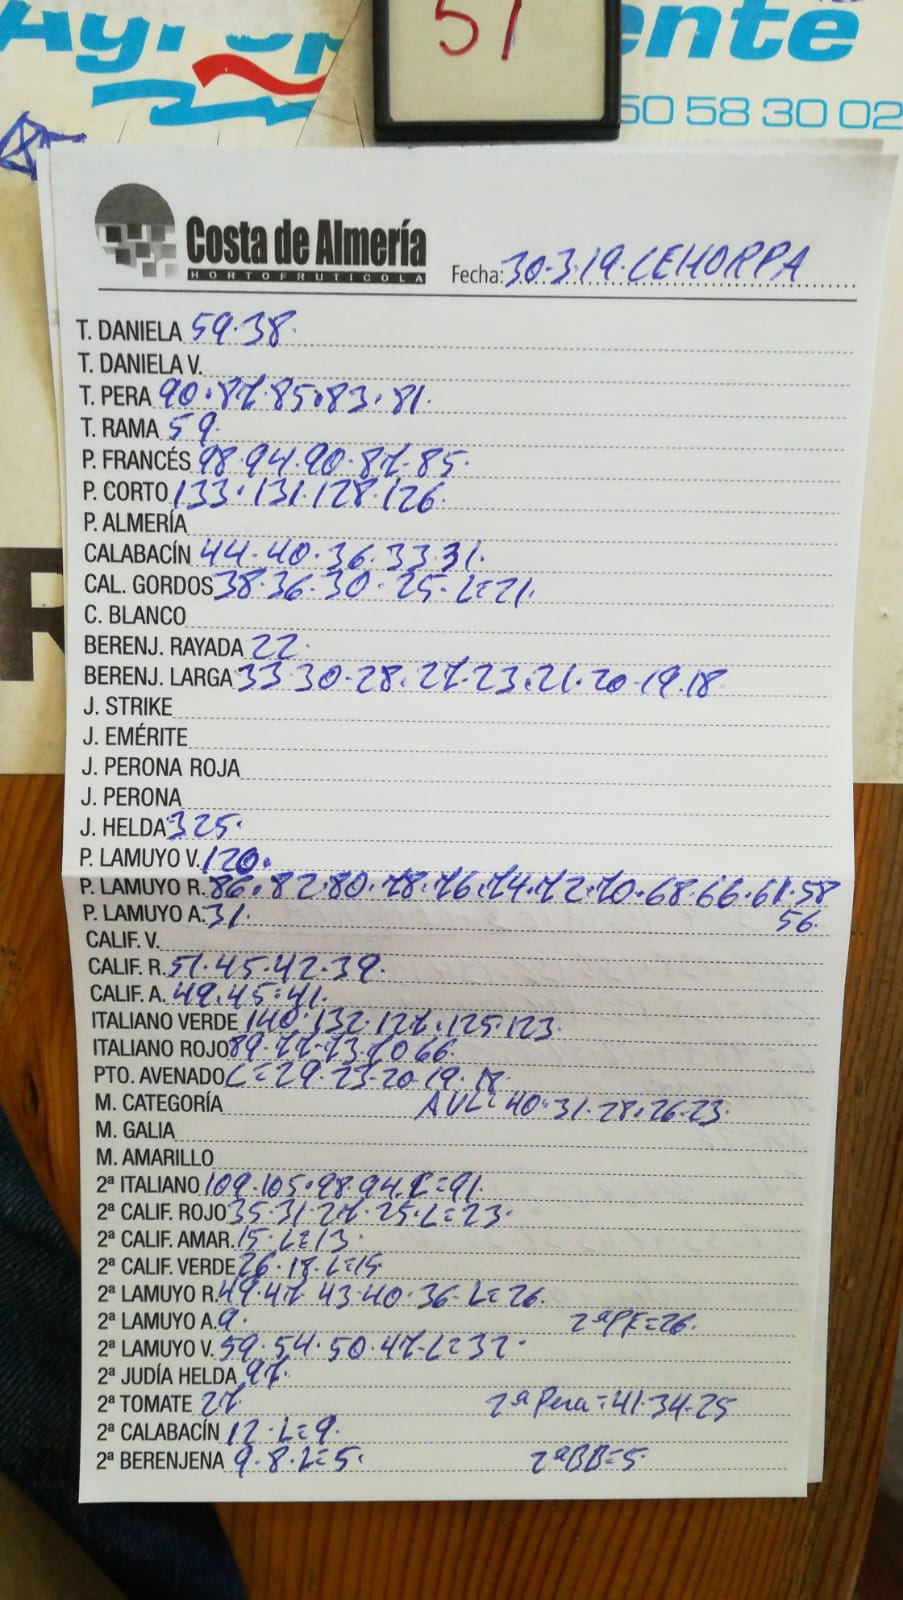 51
nte
50 58 30 02
Costa de Almería
HORTOFRUTICOLA
Fecha: 30-3-19. CEHORPA
T. DANIELA 59.38.
T. DANIELA V.
T. PERA 90.87.85.83.81.
T. RAMA 59.
P. FRANCÉS 98.94.90.87.85.
P. CORTO 133.131.128.126
P. ALMERÍA
CALABACÍN 44.40.36.33.31.
CAL. GORDOS 38.36.30-25-L=21.
C. BLANCO
BERENJ. RAYADA 22.
BERENJ. LARGA 33 30.28.27.23.21.20-19.18
J. STRIKE
J. EMÉRITE
J. PERONA ROJA
J. PERONA
J. HELDA 325.
P. LAMUYO V. 120.
P. LAMUYO R. 86.82.80.78.76.74.72.70.68.66.61.58
P. LAMUYO A. 31. 56.
CALIF. V.
CALIF. R. 51.45.42.39.
CALIF. A. 49.45.41.
ITALIANO VERDE 140.132.127.125.123.
ITALIANO ROJO 89.77.73.70 66.
PTO. AVENADO L=29.23-20-19.18.
M. CATEGORÍA AVL=40.31.28.26.23.
M. GALIA
M. AMARILLO
2ª ITALIANO 109.105.98.94.L=91.
2ª CALIF. ROJO 35.31.27.25.L=23.
2ª CALIF. AMAR. 15.L=13.
2ª CALIF. VERDE 26.18.L=15
2ª LAMUYO R. 49.47 43.40.36.L=26.
2ª LAMUYO A. 9. 2ªPF=26.
2ª LAMUYO V. 59.54.50.47.L=32.
2ª JUDÍA HELDA 97.
2ª TOMATE 27. 2ª Pera=41.34.25
2ª CALABACÍN 12.L=9.
2ª BERENJENA 9.8.L=5. 2ªBB=5.